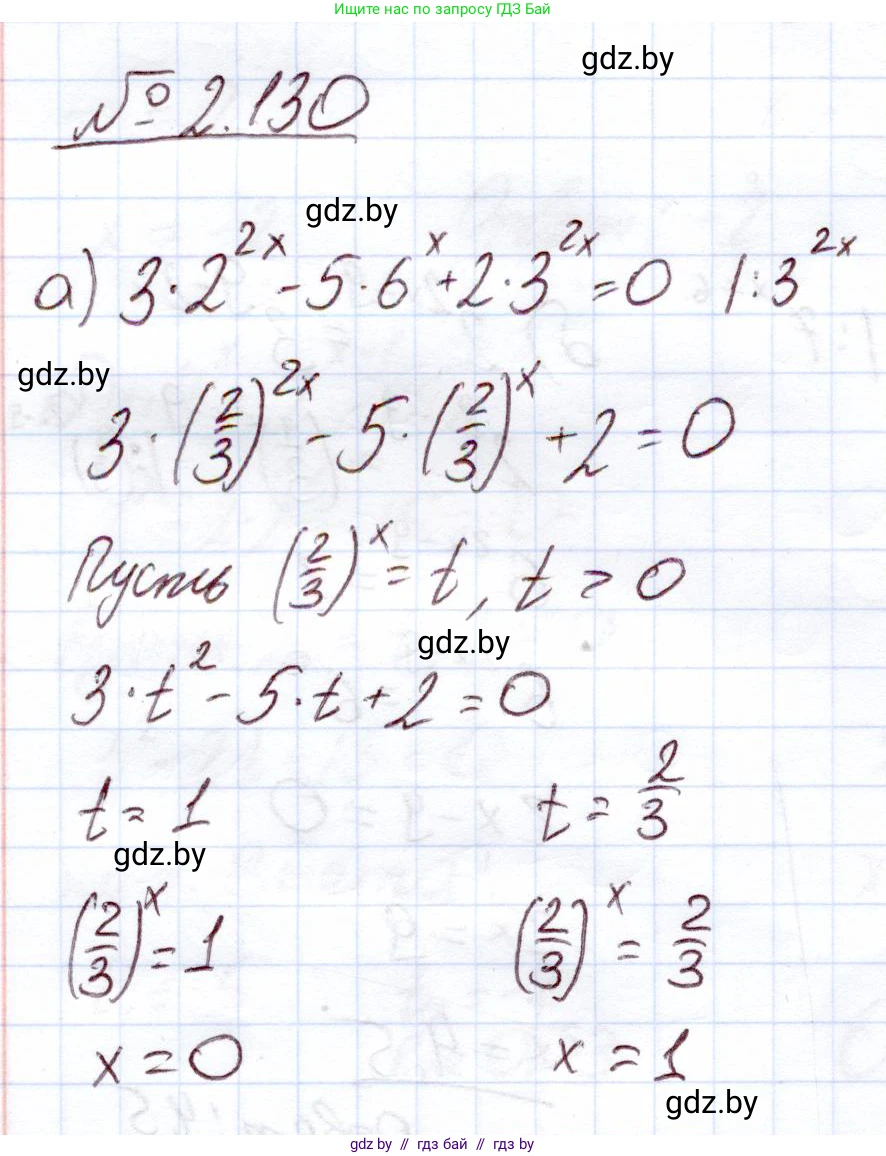 Ищите нас по запросу ГДЗ Бай
gdz.by
№ 2.130
gdz.by
а) 3·2^{2x} - 5·6^x + 2·3^{2x} = 0 |:3^{2x}
gdz.by
3·(2/3)^{2x} - 5·(2/3)^x + 2 = 0
Пусть (2/3)^x = t, t > 0
gdz.by
3·t^2 - 5·t + 2 = 0
t = 1 t = 2/3
gdz.by
(2/3)^x = 1 (2/3)^x = 2/3
x = 0 x = 1
gdz.by
gdz by // гдз бай // гдз by